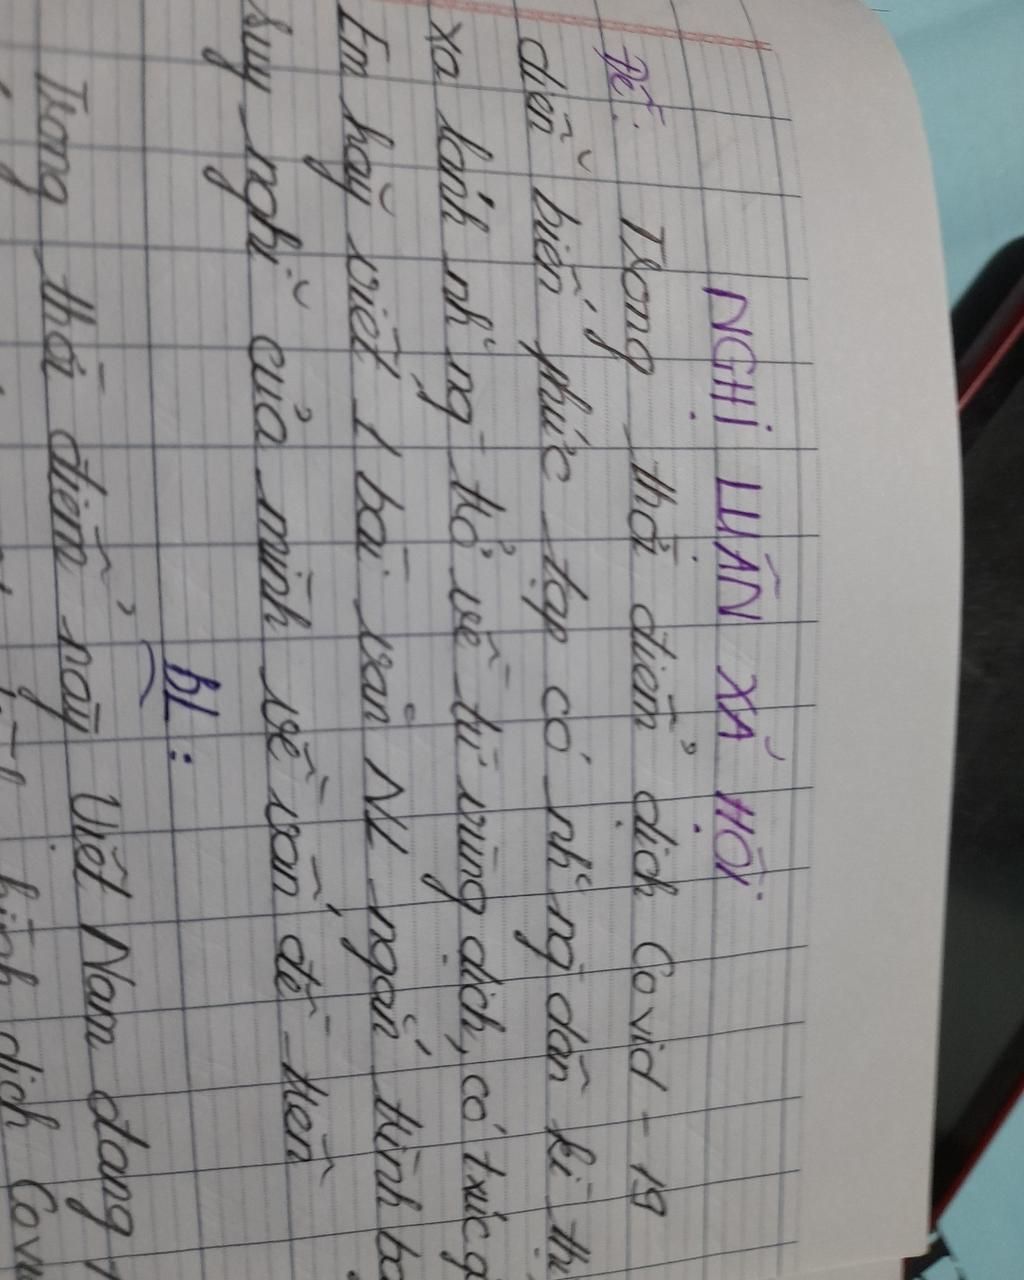 NGHỊ LUẬN XÃ HỘI
Đề: Trong thời điểm dịch Covid-19
diễn biến phức tạp có những dân kì thị
xa lánh những trở về từ vùng dịch, có
Em hãy viết 1 bài văn NL ngắn trình
suy nghĩ của mình về vấn đề trên
BL:
Trong thời điểm này Việt Nam đang
dịch